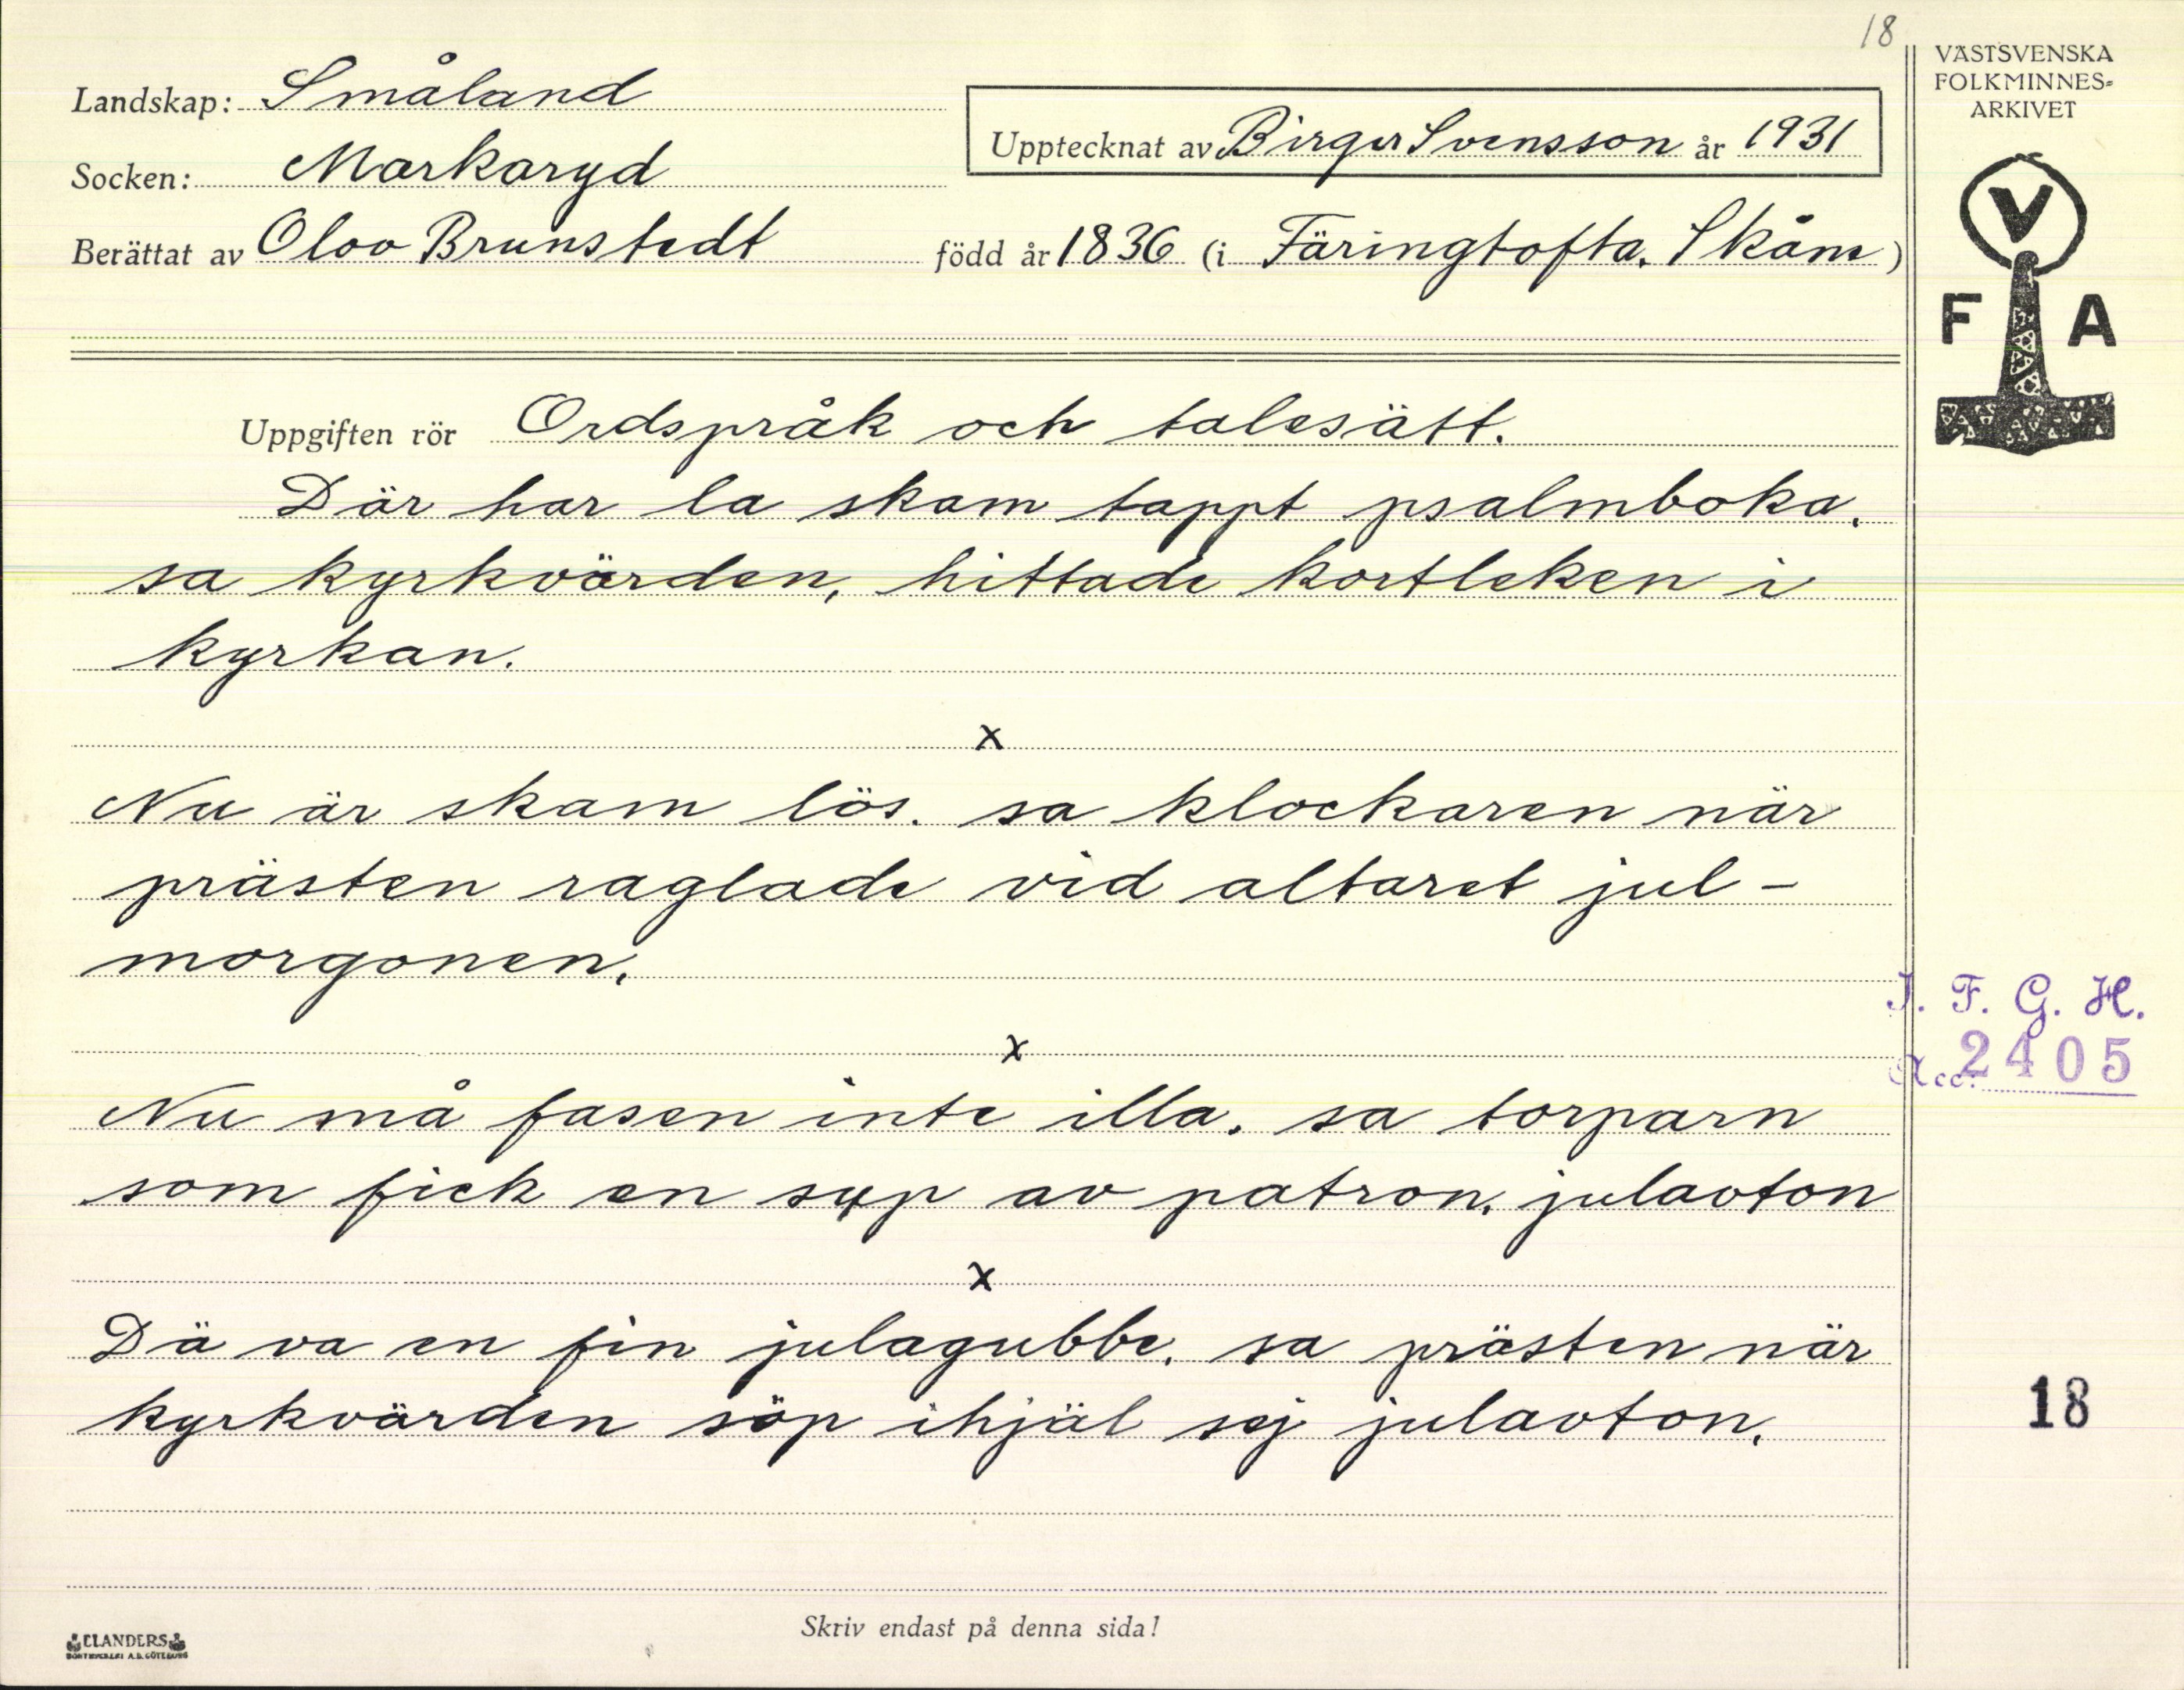 18
VÄSTSVENSKA
FOLKMINNES-
ARKIVET
Landskap: Småland
Upptecknat av Birger Svensson år 1931
Socken: Markaryd
Berättat av Olov Brunstedt född år 1836 (i Färingtofta. Skåne)
V
F A
Uppgiften rör Ordspråk och talesätt.
Där har la skam tappt psalmboka.
sa kyrkvärden, hittade kortleken i
kyrkan.
x
Nu är skam lös. sa klockaren när
prästen raglade vid altaret jul-
morgonen.
I. F. G. H.
x
Acc. 2405
Nu må fasen inte illa. sa torparn
som fick en sup av patron. julavton
x
Dä va en fin julagubbe. sa prästen när
kyrkvärden söp ihjäl sej julavton.
18
Skriv endast på denna sida!
ELANDERS
BOKTRYCKERI A.B. GÖTEBORG